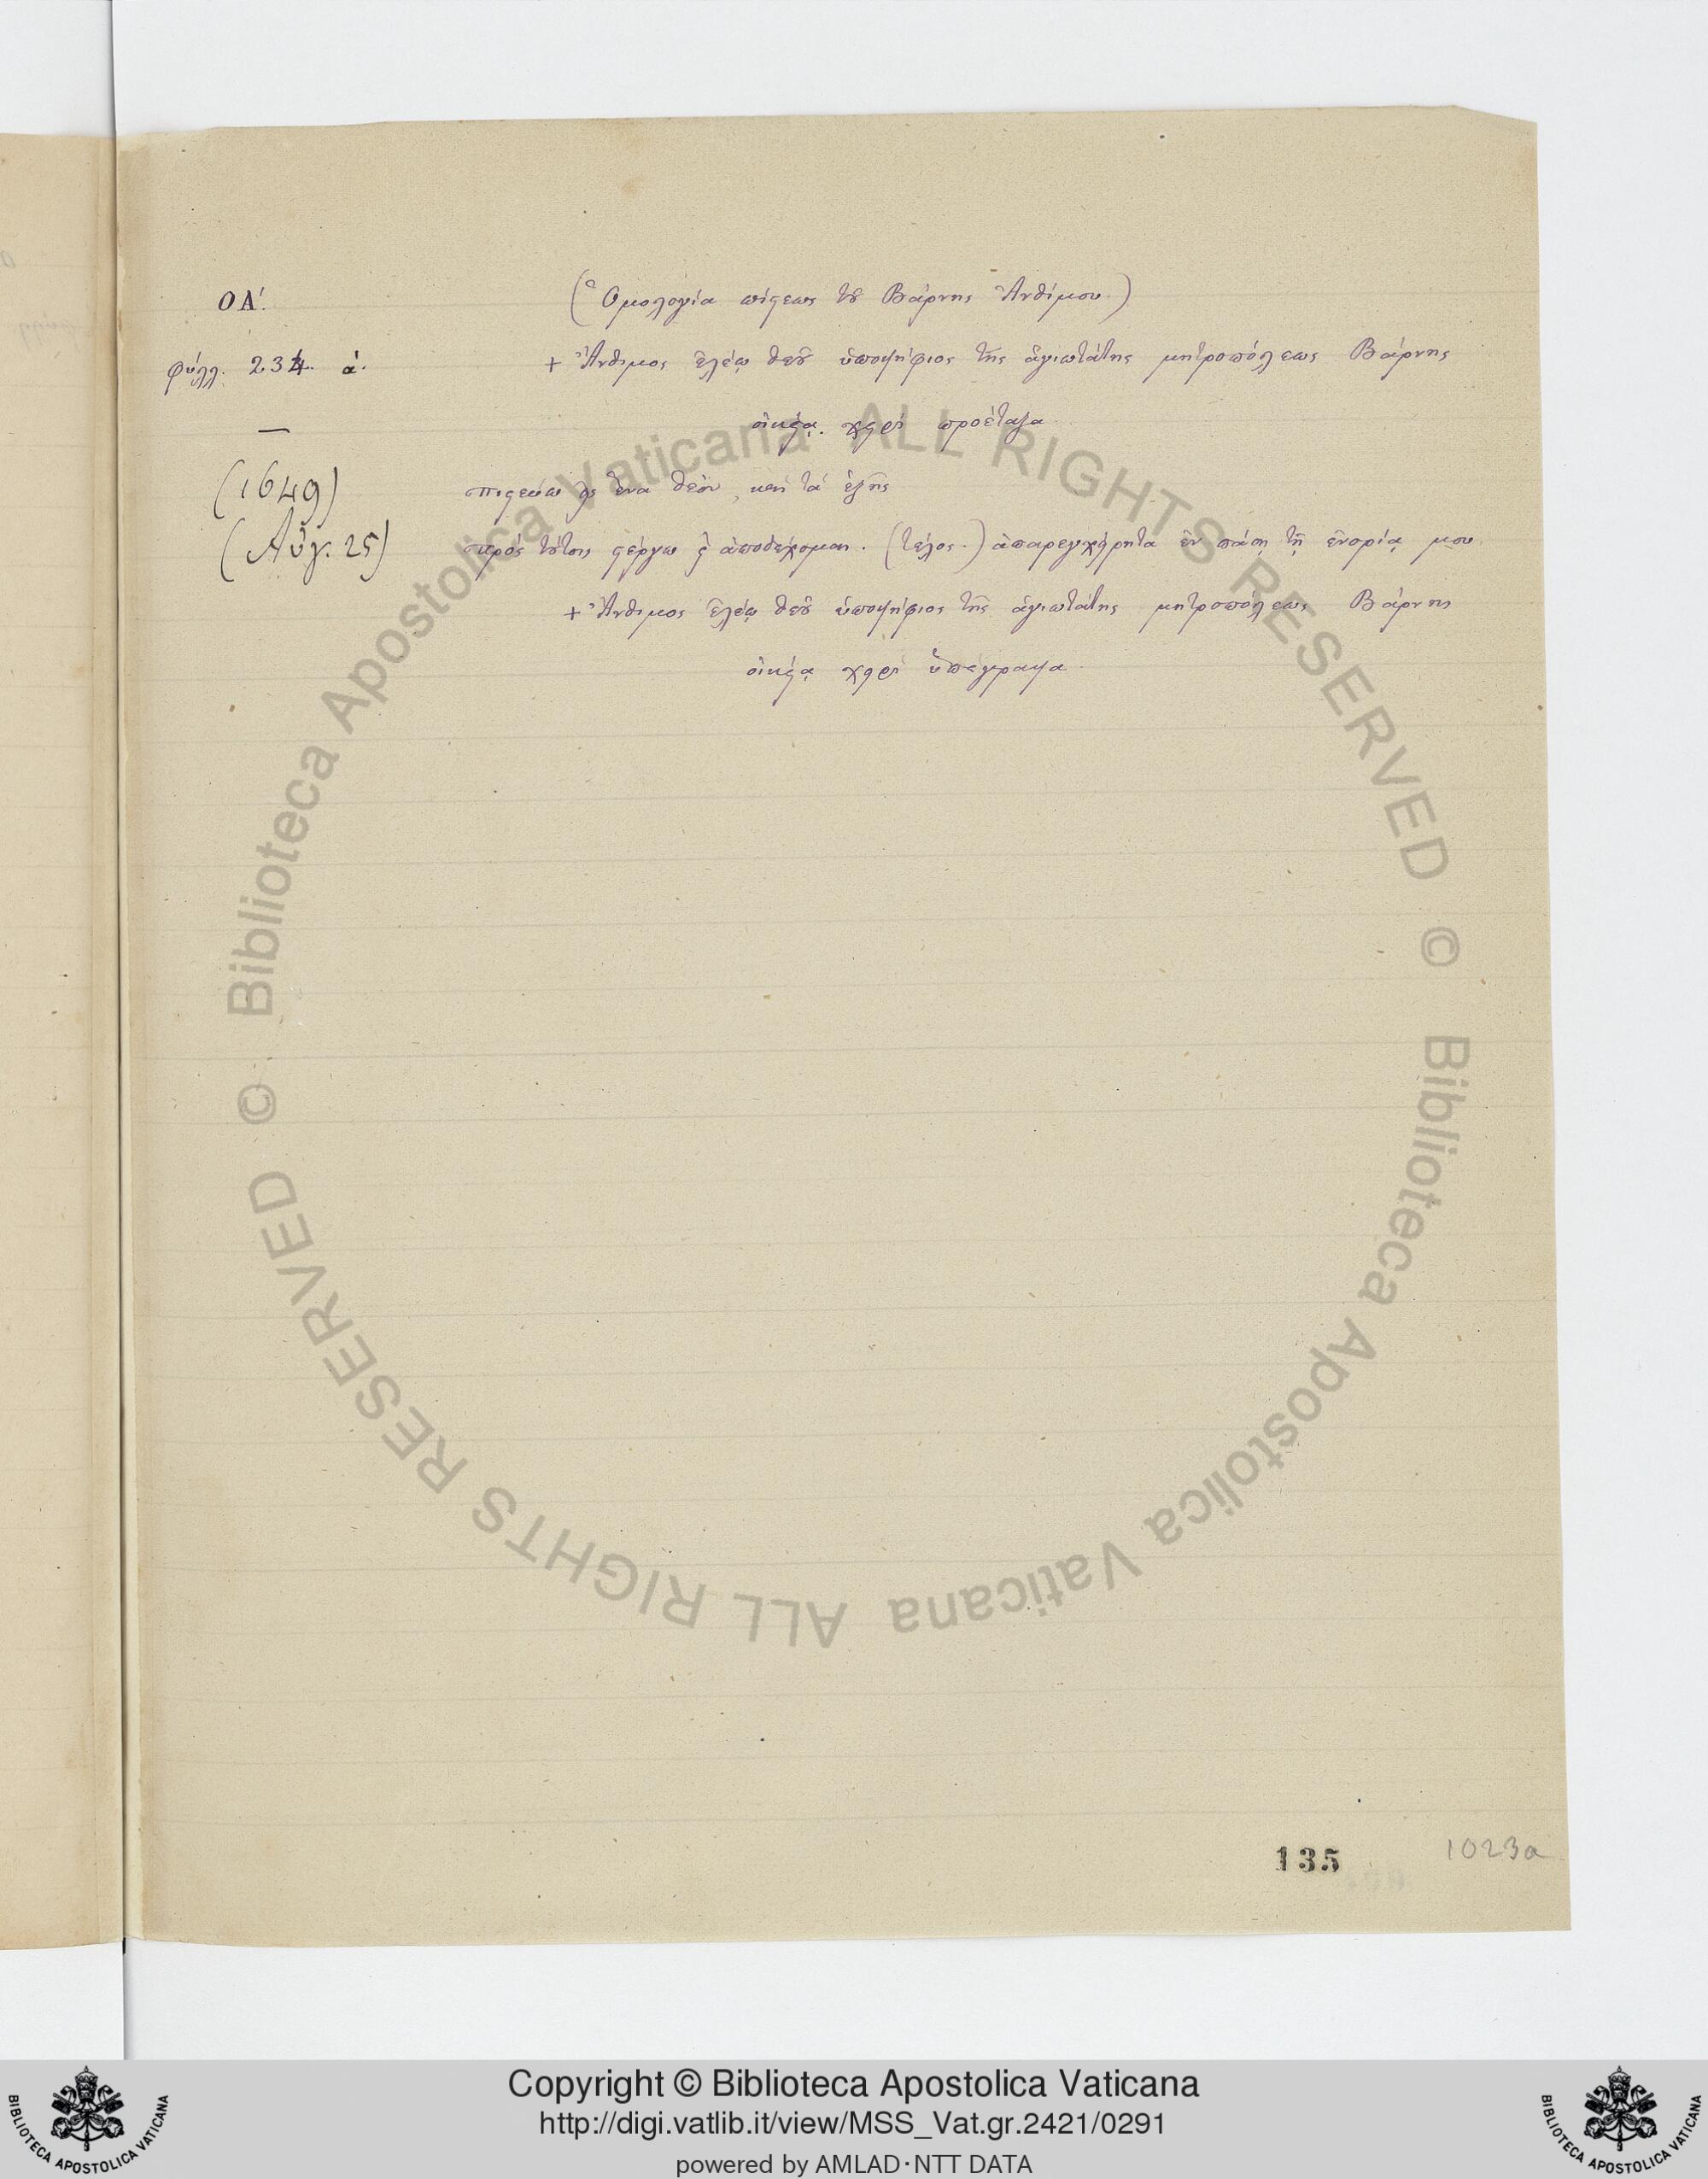 ΟΔ΄. (Ὁμολογία πίστεως τοῦ Βάρνης Ἀνθίμου.)
φύλλ. 234. α΄. + Ἄνθιμος ἐλέῳ θεοῦ ὑποψήφιος τῆς ἁγιωτάτης μητροπόλεως Βάρνης
οἰκείᾳ χειρὶ προέταξα
(1649) πιστεύω εἰς ἕνα θεόν, καὶ τὰ ἑξῆς
(Αὔγ. 25) πρὸς τούτοις στέργω καὶ ἀποδέχομαι. (τέλος.) ἀπαρεγχείρητα ἐν πάσῃ τῇ ἐνορίᾳ μου.
+ Ἄνθιμος ἐλέῳ θεοῦ ὑποψήφιος τῆς ἁγιωτάτης μητροπόλεως Βάρνης
οἰκείᾳ χειρὶ ὑπέγραψα.
135 1023a
© Biblioteca Apostolica Vaticana ALL RIGHTS RESERVED © Biblioteca Apostolica Vaticana ALL RIGHTS RESERVED
Copyright © Biblioteca Apostolica Vaticana
http://digi.vatlib.it/view/MSS_Vat.gr.2421/0291
powered by AMLAD·NTT DATA
BIBLIOTECA APOSTOLICA VATICANA
BIBLIOTECA APOSTOLICA VATICANA